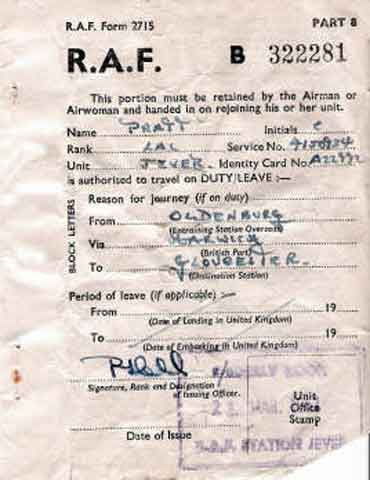 R.A.F. Form 2715 PART 8
R.A.F. B 322281
This portion must be retained by the Airman or
Airwoman and handed in on rejoining his or her unit.
Name PRATT Initials C
Rank LAC Service No.
Unit JEVER. Identity Card No.
is authorised to travel on DUTY/LEAVE :—
BLOCK LETTERS
Reason for journey (if on duty)
From OLDENBURG
(Entraining Station Overseas)
Via HARWICH
(British Port)
To GLOUCESTER.
(Destination Station)
Period of leave (if applicable) :—
From 19
(Date of Landing in United Kingdom)
To 19
(Date of Embarking in United Kingdom)
Signature, Rank and Designation
of Issuing Officer.
Unit
Office
Stamp
Date of Issue
R.A.F. STATION JEVER